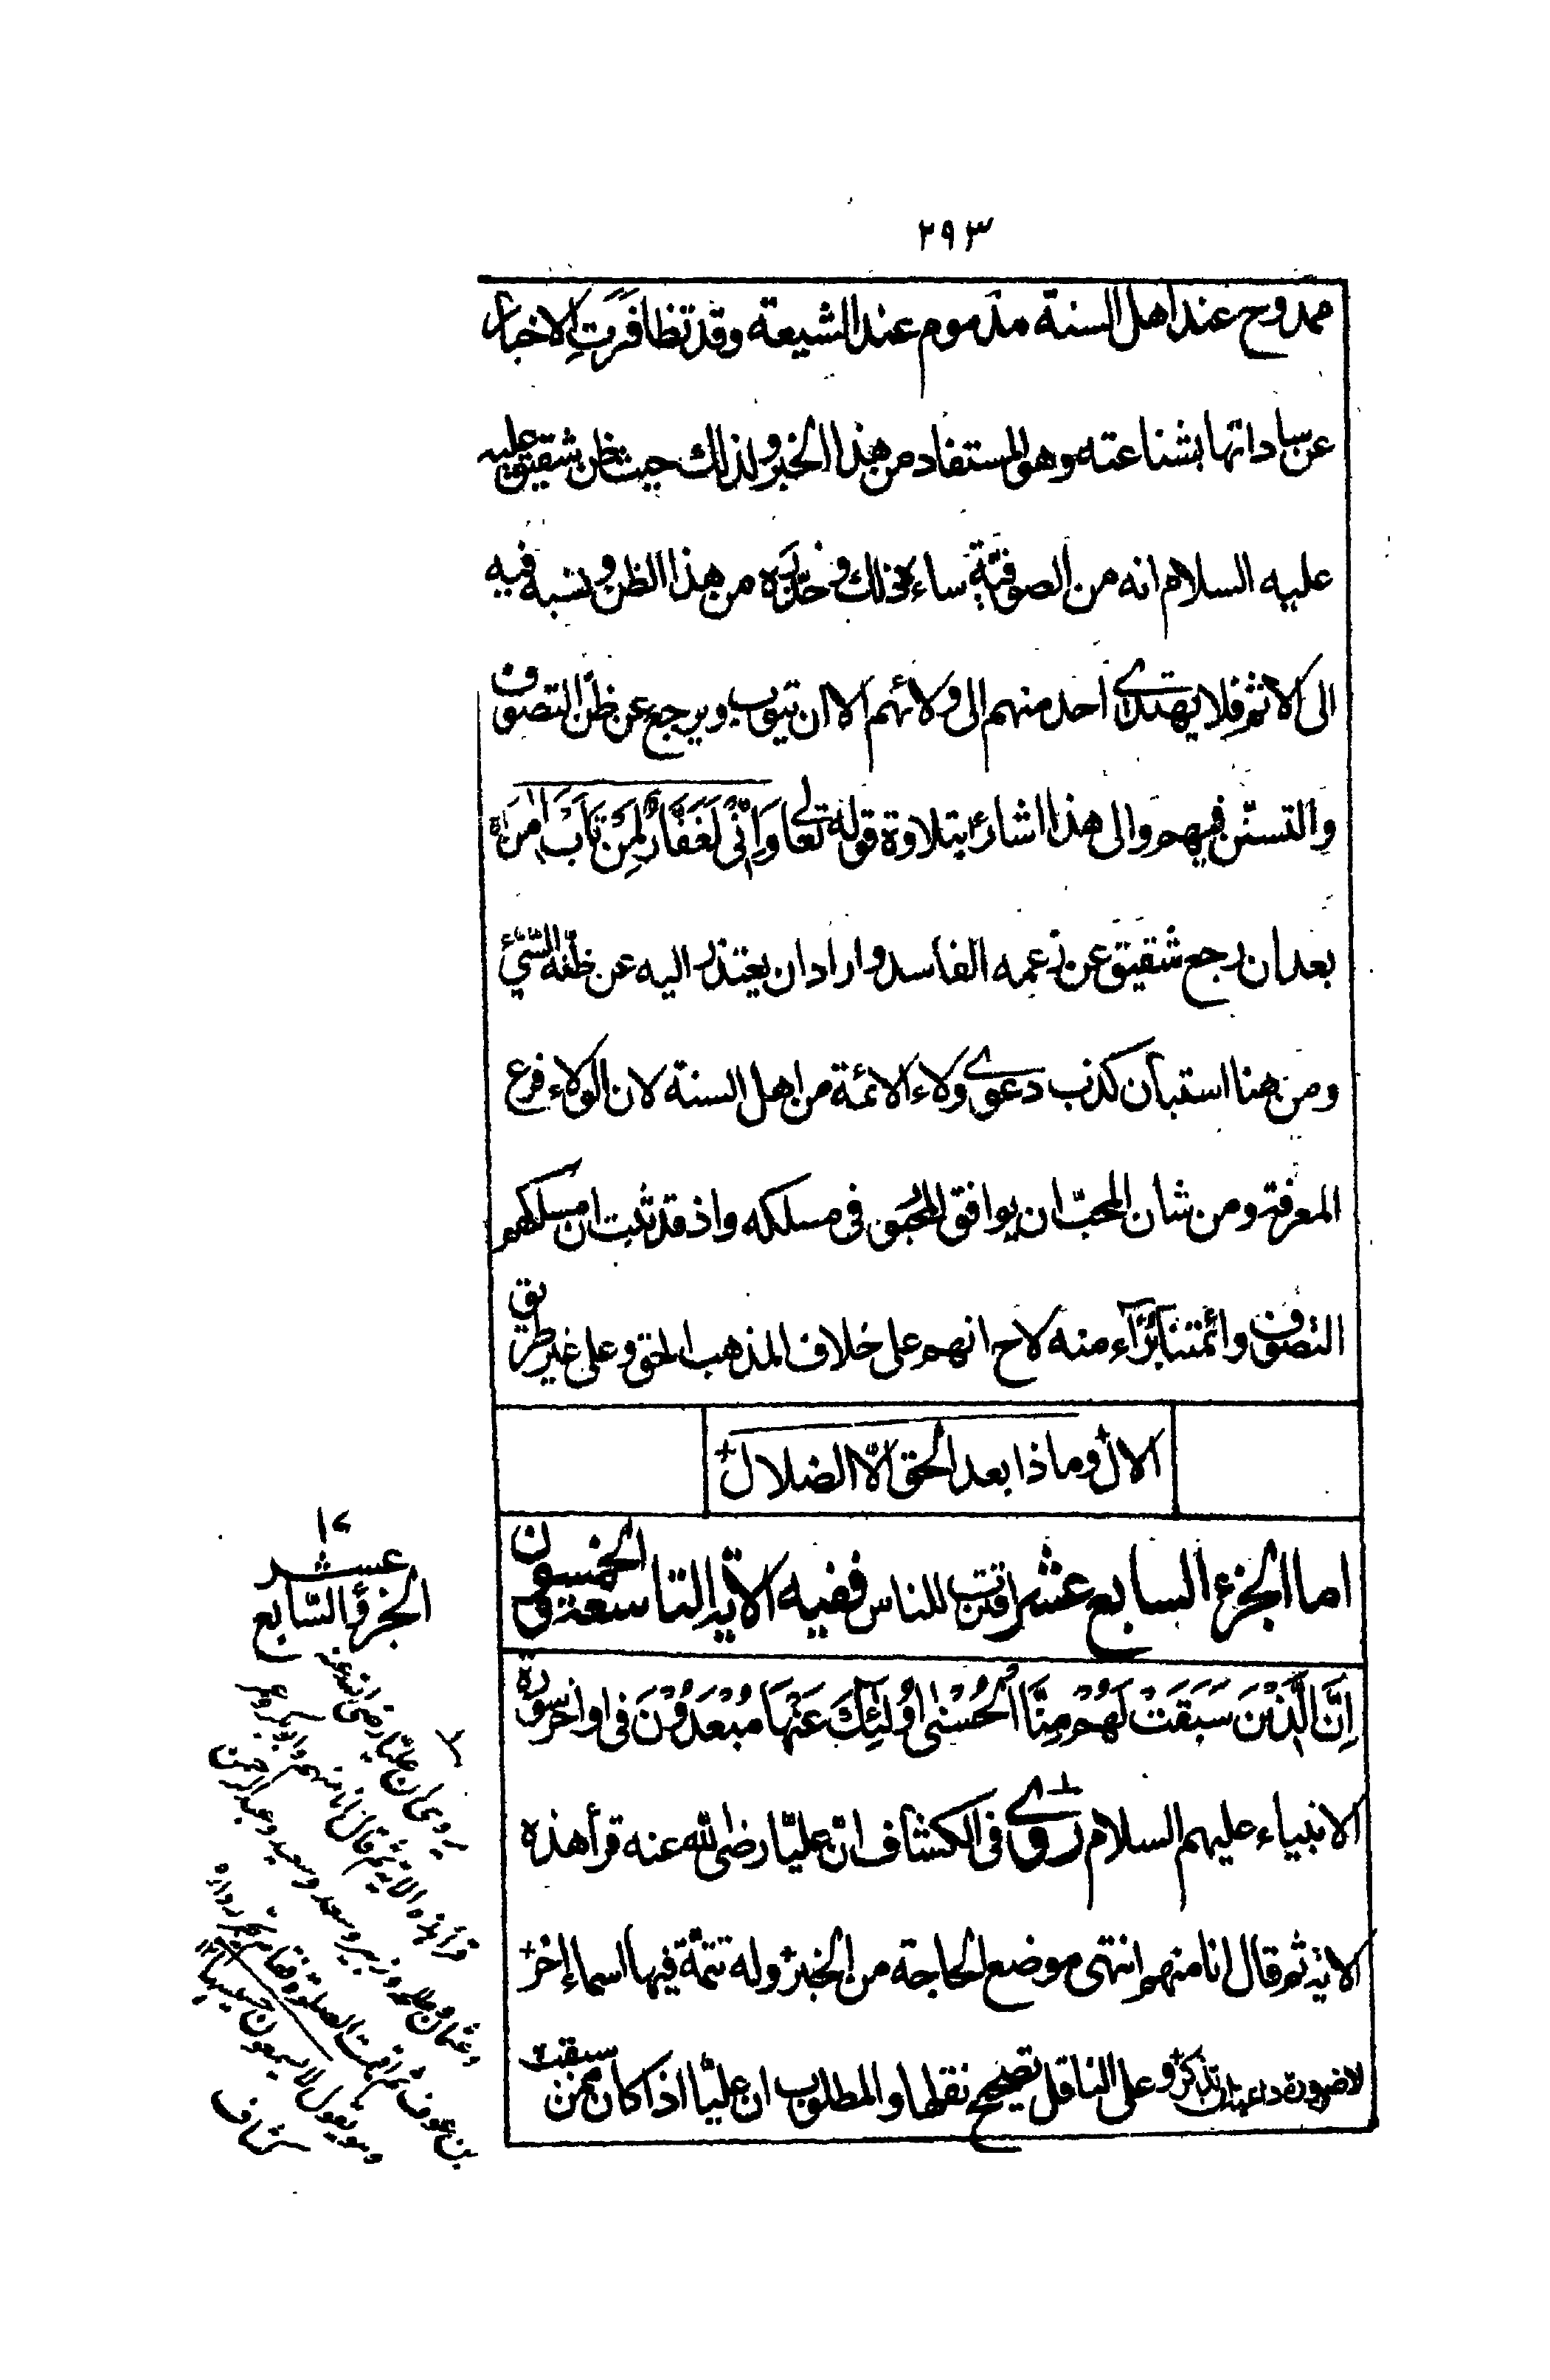 ٢٩٣
ممدوح عند اهل السنة مذموم عند الشيعة وقد تظافرت الاخبار
عن ساداتها بشناعته وهو المستفاد من هذا الخبر ولذلك حيث ظن شقيق عليه
عليه السلام انه من الصوفية ساءه ذلك وحذّره من هذا الظن ونسبه فيه
الى الاثم فلا يهتدى احد منهم الى ولائهم الا ان يتوب ويرجع عن ظن التصوف
والتسنن فيهم والى هذا اشار بتلاوة قوله تعالى وَاِنِّى لَغَفَّارٌ لِمَنْ تَابَ
بعد ان رجع شقيق عن زعمه الفاسد واراد ان يعتذر اليه عن ظنّه السّيّئ
ومن هنا استبان كذب دعوى ولاء الائمة من اهل السنة لان الولاء فرع
المعرفة ومن شان المحبّ ان يوافق المحبوب فى مسلكه واذ قد ثبت ان مسلكهم
التصوف وائمتنا بُرَآء منه لاح انهم على خلاف المذهب الحق وعلى غير طريق
الال وماذا بعد الحق الّا الضلال
اما الجزء السابع عشر اقترب للناس ففيه الآية التاسعة والخمسون
اِنَّ الَّذِيْنَ سَبَقَتْ لَهُمْ مِنَّا الْحُسْنٰى اُولٰئِكَ عَنْهَا مُبْعَدُوْنَ فى اواخر سورة
الانبياء عليهم السلام روى فى الكشاف انّ عليّا رضى الله عنه قرأ هذه
الاية ثم قال انا منهم انتهى موضع الحاجة من الخبر وله تتمّة فيها اسماء اخر
لا ضرورة داعية الى تذكر وعلى الناقل تصحيح نقلها والمطلوب ان عليًّا اذا كان ممن سبقت
١٧
الجزؤ السّابع عشر
روى ان عليّا رضى الله عنه
قرأ هذه الاية ثم قال انا منهم وابوبكر وعمر
وعثمان وطلحة وزبير وسعد وسعيد وعبد الرحمن
بن عوف ثم اقيمت الصلوة فقام يجر رداءه
وهو يقول لا يسمعون حسيسها
كشاف